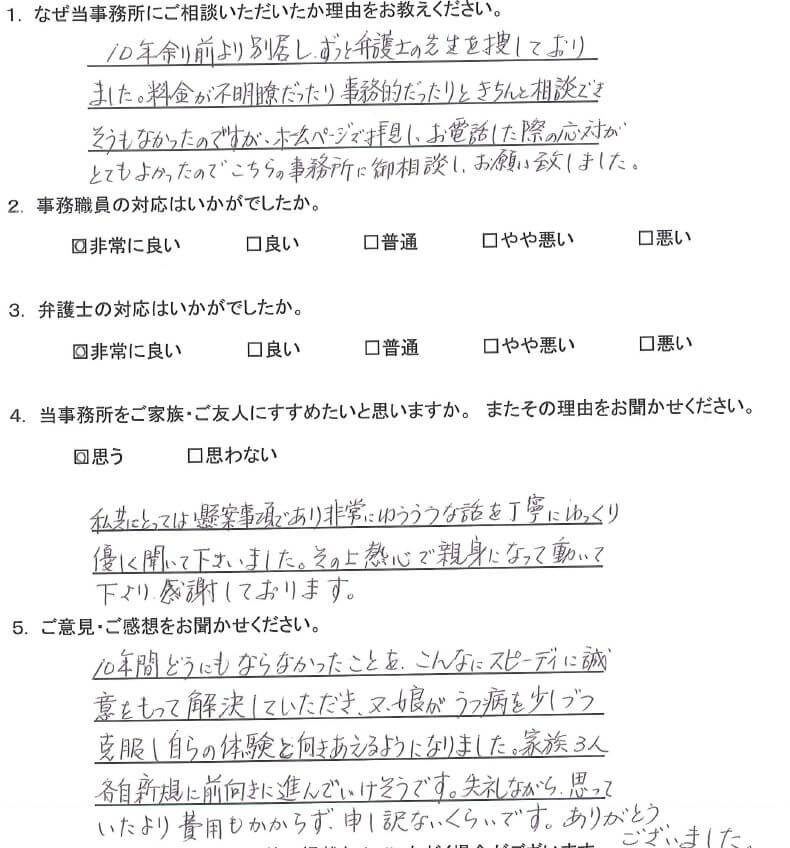 1. なぜ当事務所にご相談いただいたか理由をお教えください。
10年余り前より別居し、ずっと弁護士の先生を捜しており
ました。料金が不明瞭だったり事務的だったりときちんと相談でき
そうもなかったのですが、ホームページで拝見し、お電話した際の応対が
とてもよかったのでこちらの事務所に御相談し、お願い致しました。
2. 事務職員の対応はいかがでしたか。
☑非常に良い □良い □普通 □やや悪い □悪い
3. 弁護士の対応はいかがでしたか。
☑非常に良い □良い □普通 □やや悪い □悪い
4. 当事務所をご家族・ご友人にすすめたいと思いますか。 またその理由をお聞かせください。
☑思う □思わない
私共にとっては懸案事項であり非常にゆううつな話を丁寧にゆっくり
優しく聞いて下さいました。その上熱心で親身になって動いて
下さり、感謝しております。
5. ご意見・ご感想をお聞かせください。
10年間どうにもならなかったことを、こんなにスピーディに誠
意をもって解決していただき、又、娘がうつ病を少しづつ
克服し自らの体験と向きあえるようになりました。家族3人
各自新規に前向きに進んでいけそうです。失礼ながら、思って
いたより費用もかからず、申し訳ないくらいです。ありがとう
ございました。